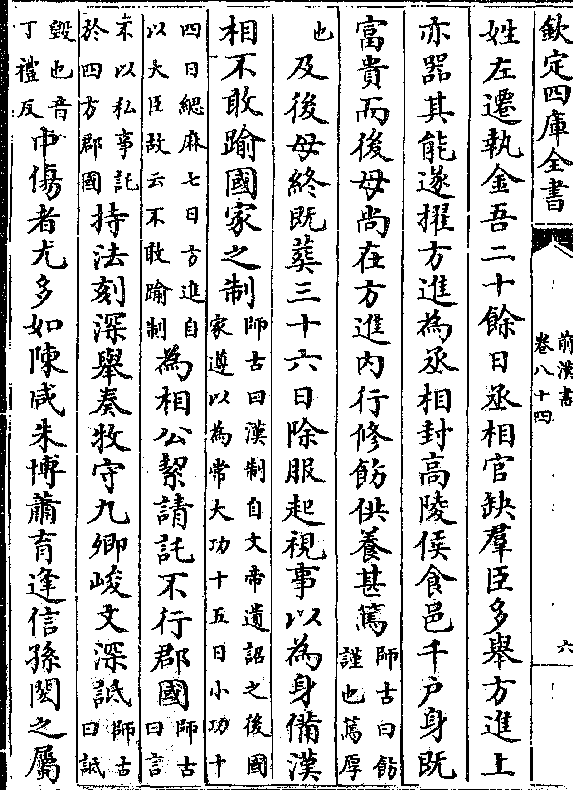 欽定四庫全書
前漢書
卷八十四
六
姓左遷執金吾二十餘日丞相官缺羣臣多舉方進上
亦器其能遂擢方進為丞相封高陵侯食邑千户身既
富貴而後母尚在方進内行修飭供養甚篤師古曰飭
謹也篤厚
也及後母終既葬三十六日除服起視事以為身備漢
相不敢踰國家之制師古曰漢制自文帝遺詔之後國
家遵以為常大功十五日小功十
四日緦麻七日方進自
以大臣故云不敢踰制為相公絜請託不行郡國師古
曰言
不以私事託
於四方郡國持法刻深舉奏牧守九卿峻文深詆師古
曰詆
毁也音
丁禮反中傷者尤多如陳咸朱博蕭育逢信孫閎之屬